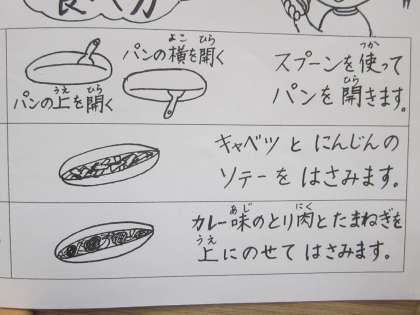 食べ方
パンの横を開く
よこ ひら
パンの上を開く
うえ ひら
スプーンを使って
つか
パンを開きます。
ひら
キャベツとにんじんの
ソテーをはさみます。
カレー味のとり肉とたまねぎを
あじ にく
上にのせてはさみます。
うえ